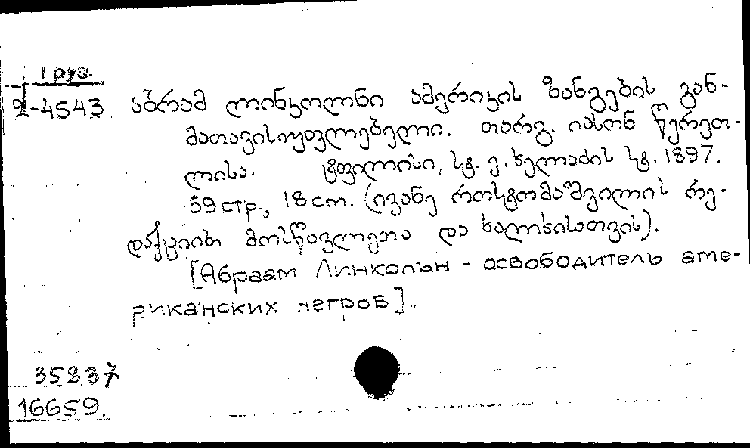 1 руз.
2-4543
აბრამ ლინკოლნი ამერიკის ზანგების გან-
მათავისიუფლებელი. თარგ. იასონ წერეთ-
ლისა. ტფილისი, სტ. ე. ხელაძის სტ. 1897.
59 стр., 18 cm. (ივანე როსტომაშვილის რე-
დაქციით მოსწავლეთა და ხალხისათვის).
[Абраам Линкольн - освободитель аме-
риканских негров].
35837
16659.